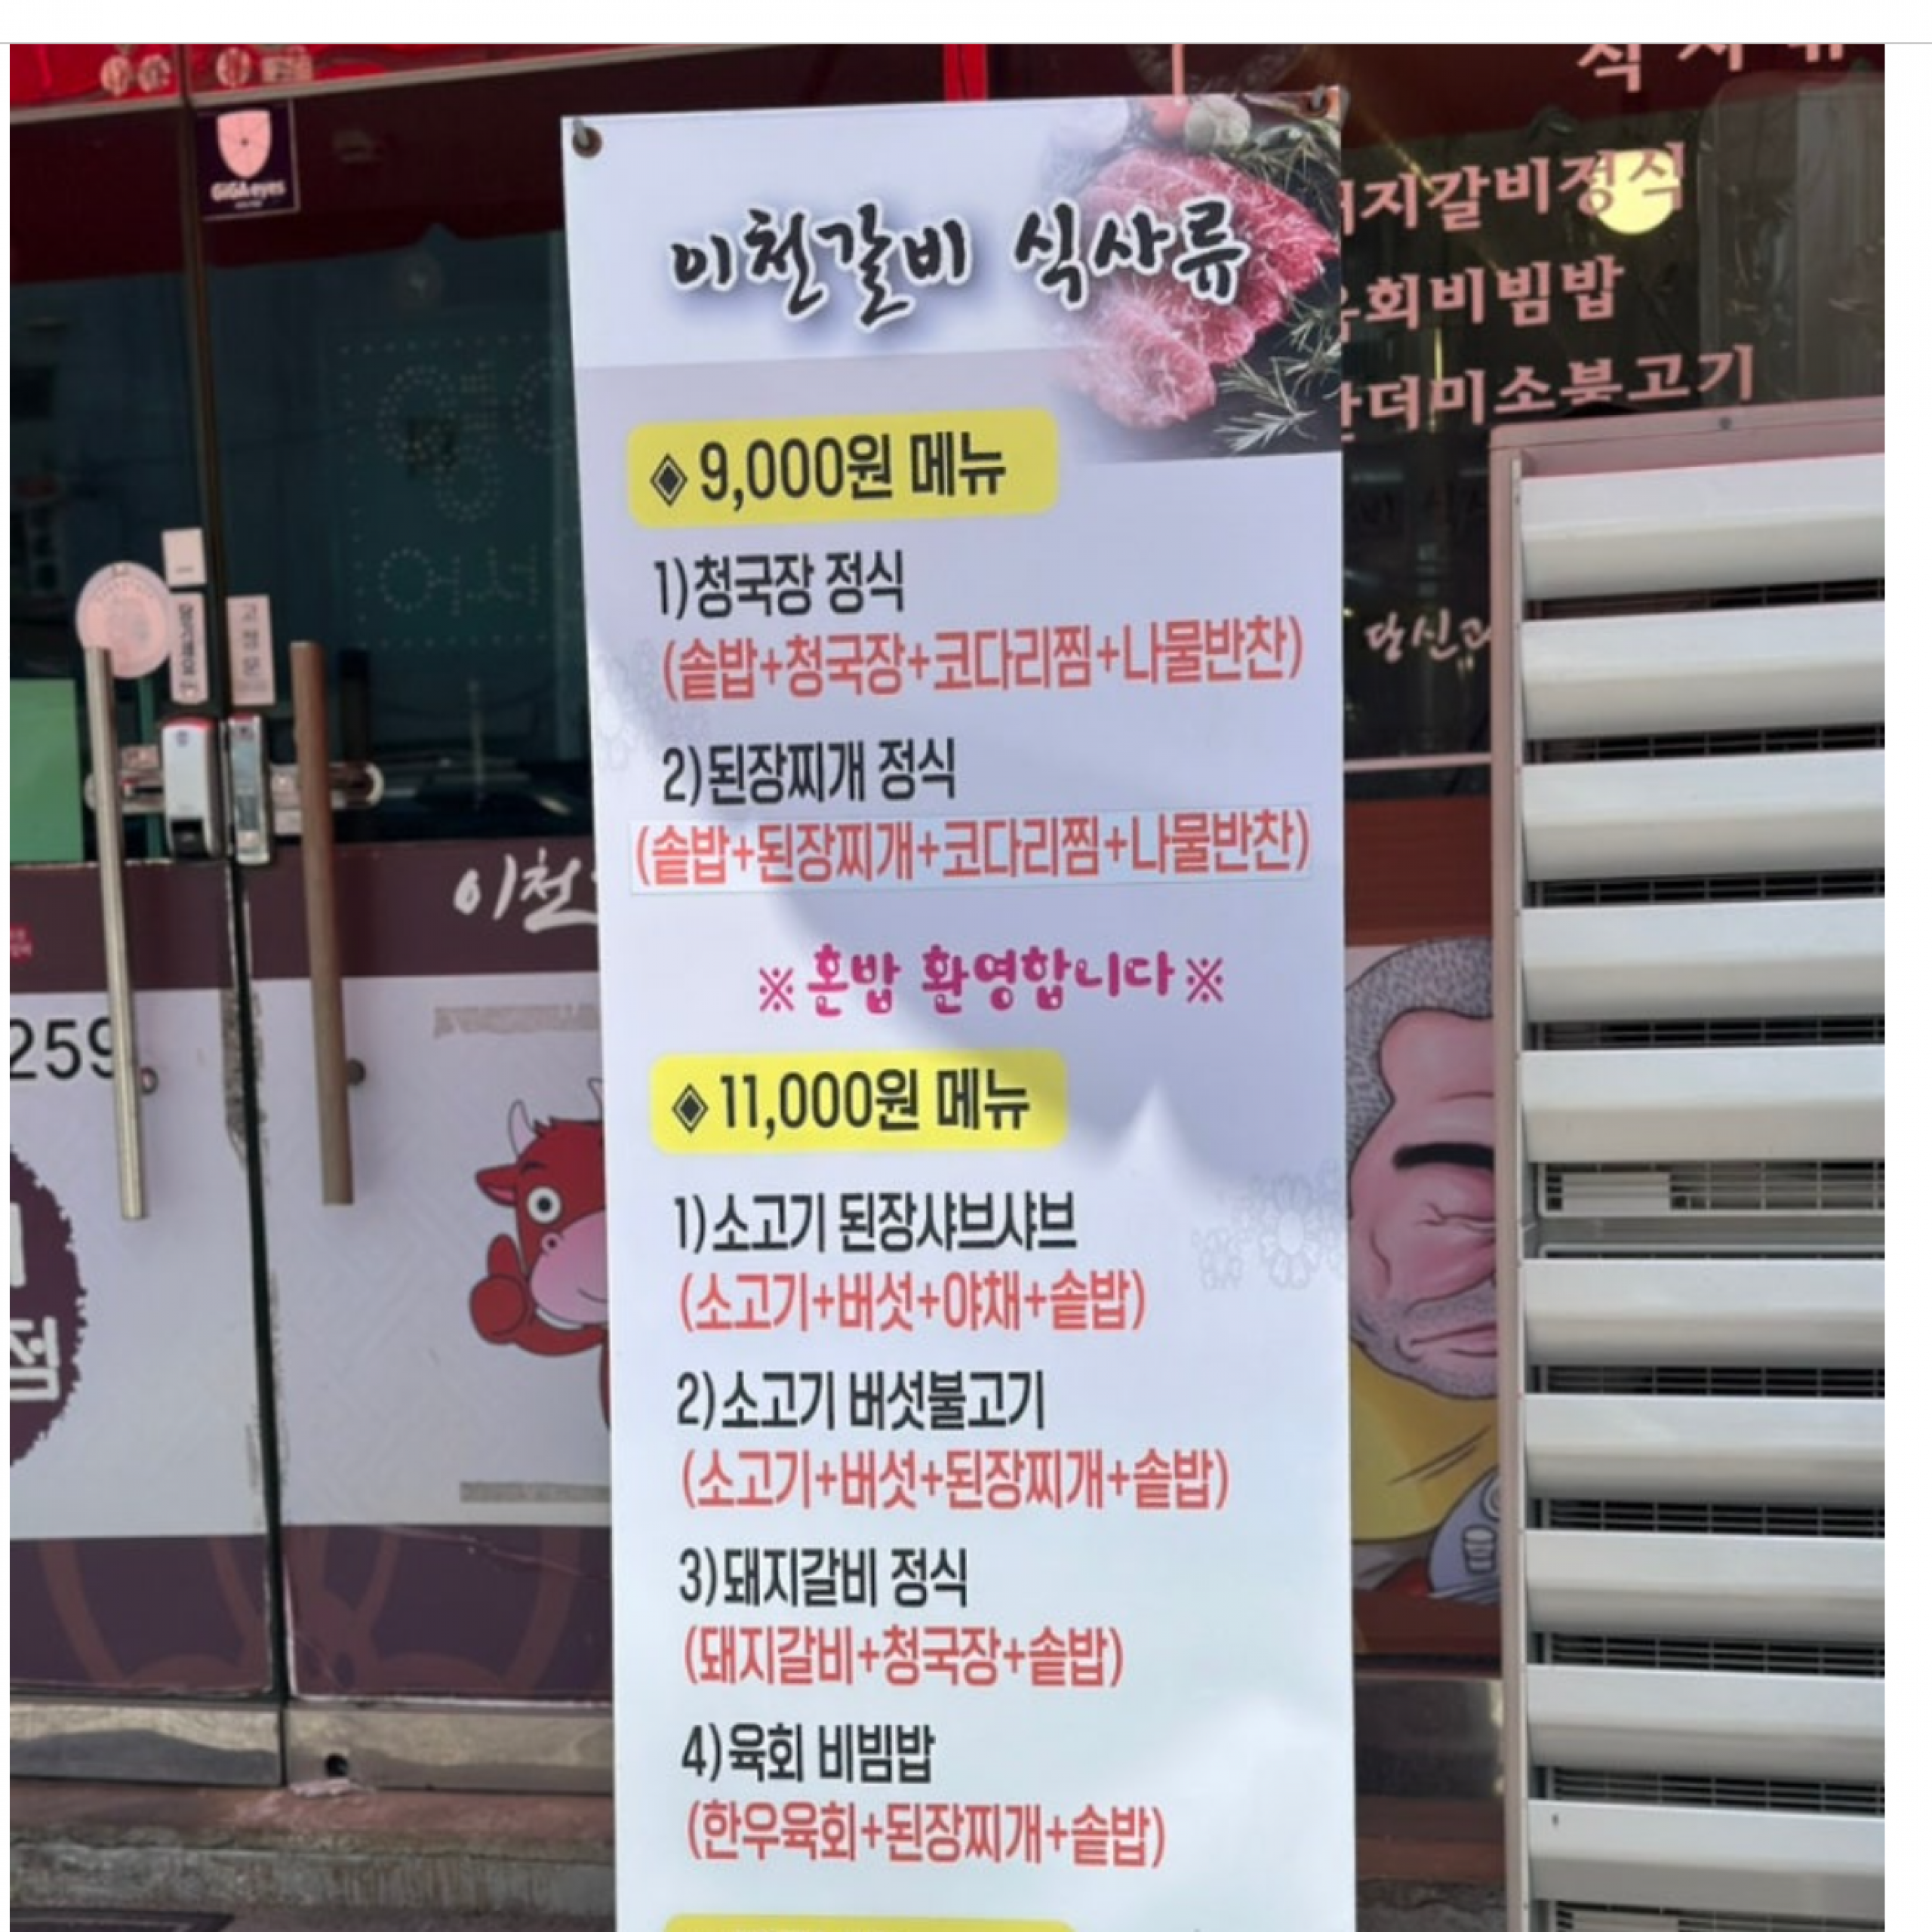 이천갈비 식사류
◈ 9,000원 메뉴
1)청국장 정식
(솥밥+청국장+코다리찜+나물반찬)
2)된장찌개 정식
(솥밥+된장찌개+코다리찜+나물반찬)
※혼밥 환영합니다※
◈ 11,000원 메뉴
1)소고기 된장샤브샤브
(소고기+버섯+야채+솥밥)
2)소고기 버섯불고기
(소고기+버섯+된장찌개+솥밥)
3)돼지갈비 정식
(돼지갈비+청국장+솥밥)
4)육회 비빔밥
(한우육회+된장찌개+솥밥)
GiGAeyes
고정문
이천
259
점
지갈비정식
회비빔밥
더미소불고기
당신